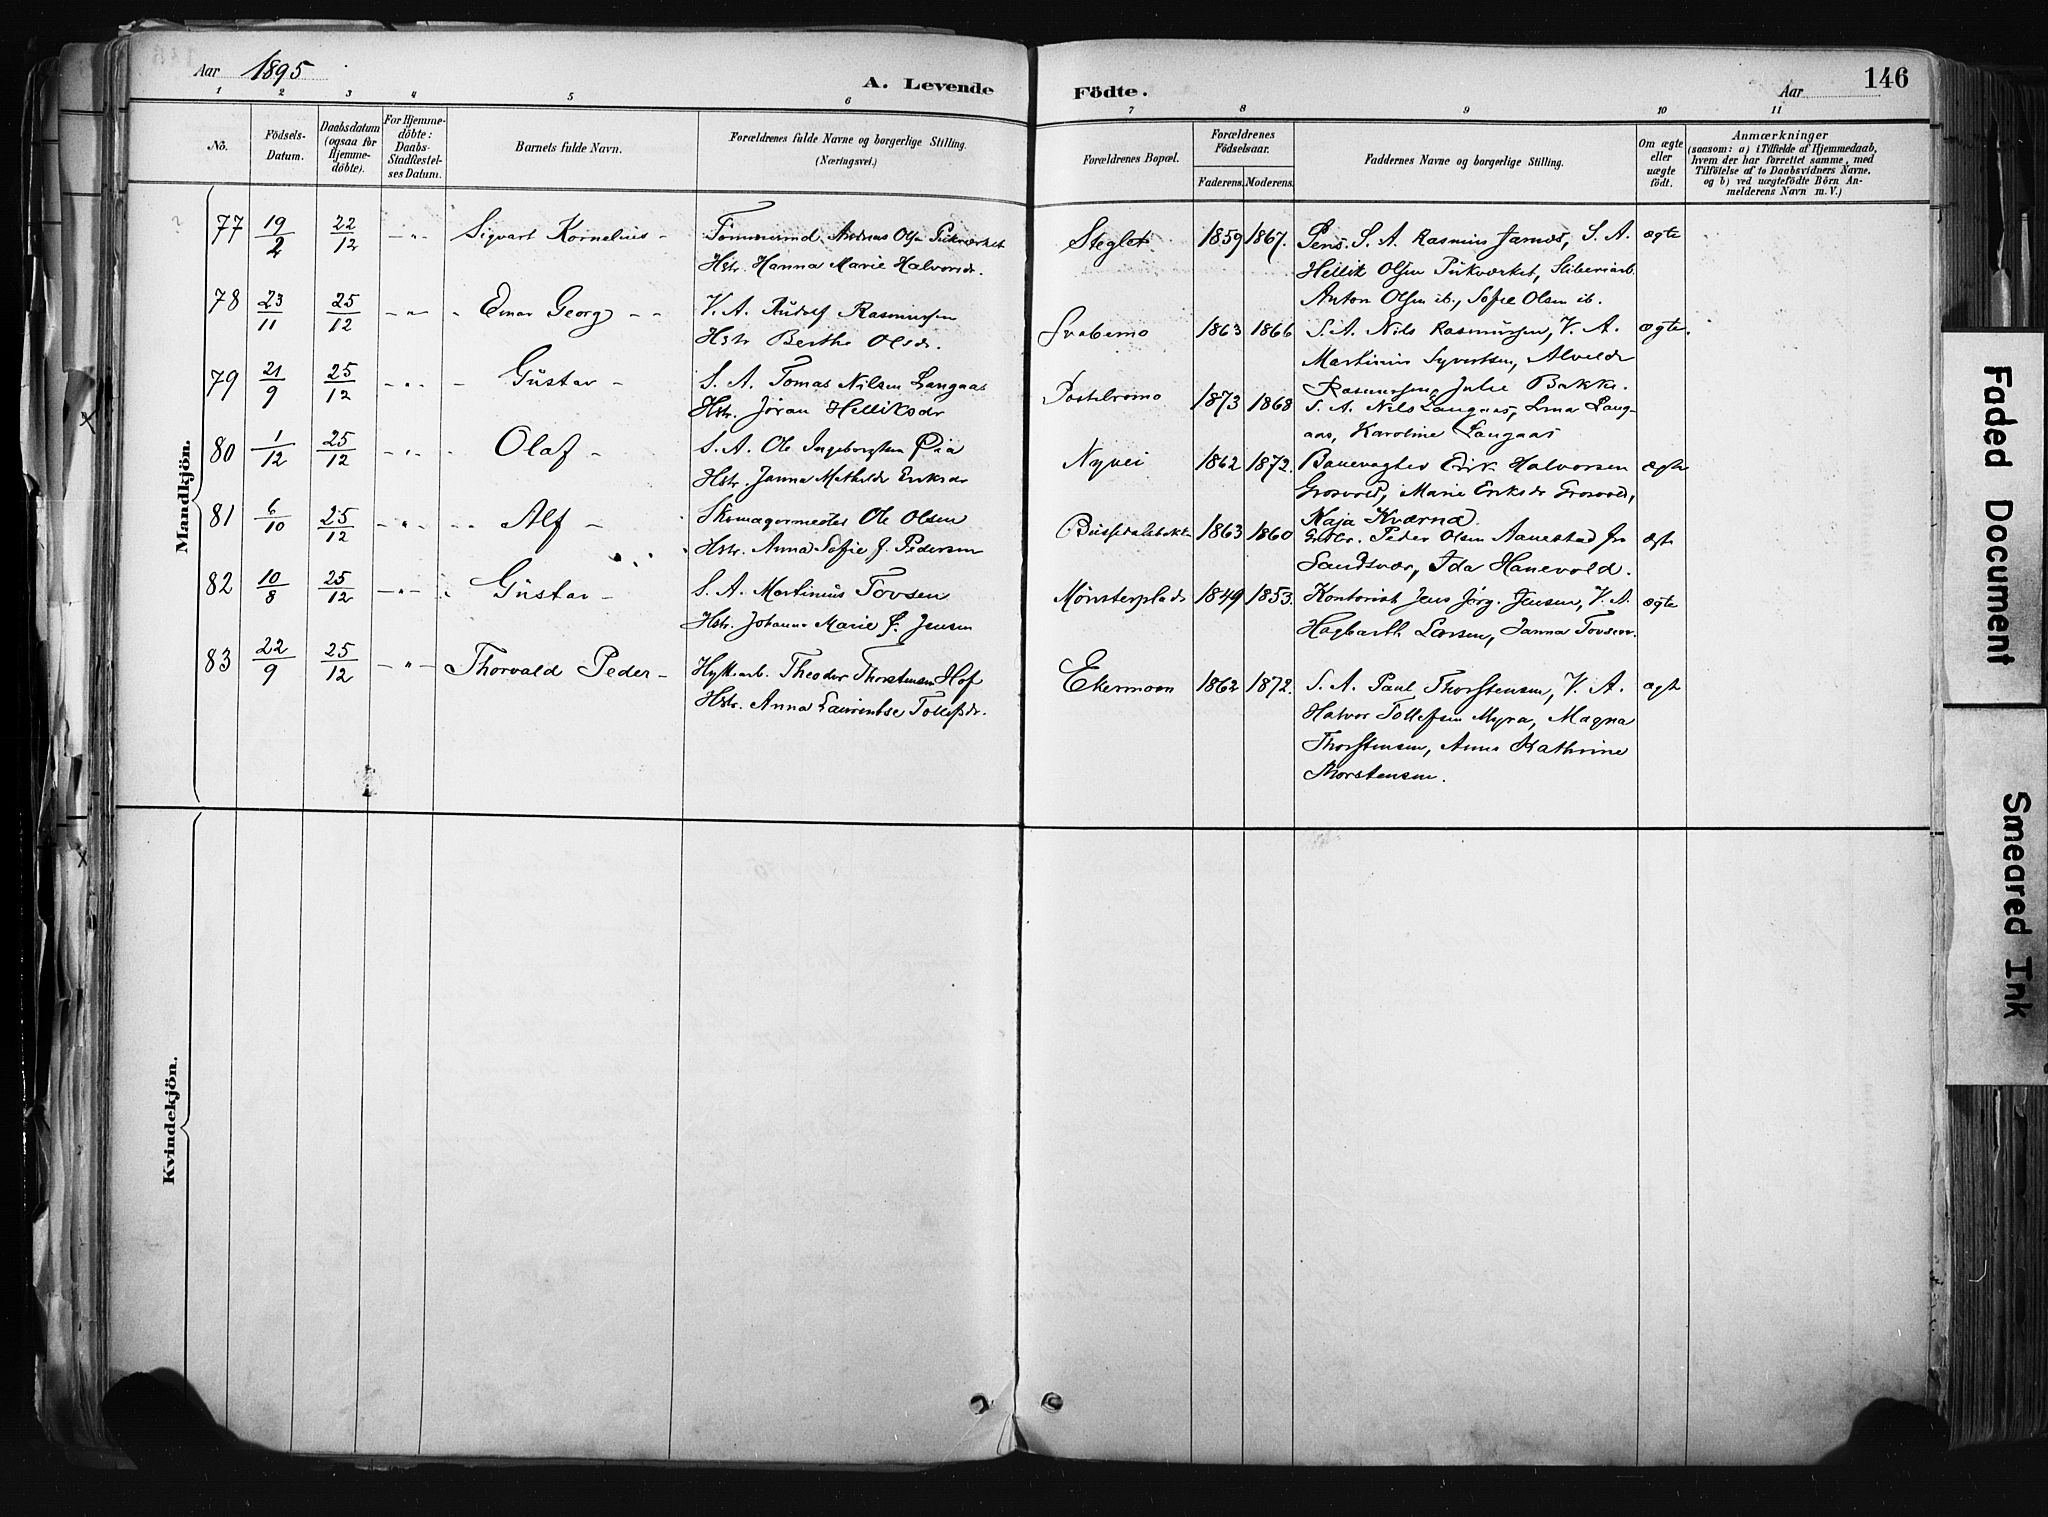 Aar 1895
A. Levende
Födte.
Aar
146
1 2 3 4 5 6 7 8 9 10 11
No.
Födsels-
Datum.
Daabsdatum
(ogsaa for
Hjemme-
döbte).
For Hjemme-
döbte:
Daabs-
Stadfæstel-
ses Datum.
Barnets fulde Navn.
Forældrenes fulde Navne og borgerlige Stilling.
(Næringsvei.)
Forældrenes Bopæl.
Forældrenes
Födselsaar.
Faderens.
Moderens.
Faddernes Navne og borgerlige Stilling.
Om ægte
eller
uægte
født.
Anmærkninger
(saasom: a) i Tilfælde af Hjemmedaab,
hvem der har forrettet samme, med
Tilföielse af to Daabsvidners Navne,
og b) ved uægtefödte Börn An-
melderens Navn m. V.)
Mandkjön.
77 19/2 22/12 -"- Sigvart Kornelius - Tømmermd. Andreas Olsen Pukværket
Hstr. Hanna Marie Halvorsdr.
Steglet 1859 1867. Pens. S. A. Rasmus Jarnæs, S. A. ægte
Hellik Olsen Pukværket, Stiberiarb.
Anton Olsen ib., Sofie Olsen ib.
78 23/11 25/12 -"- Einar Georg - - V. A. Rudolf Rasmussen
Hstr Berthe Olsdr.
Svabemo 1863 1866 S. A. Nils Rasmussen, V. A. ægte.
Martinius Syvertsen, Alvilde
Rasmussen, Julie Bakke.
79 21/9 25/12 -"- Gustav - S. A. Tomas Nilsen Langaas
Hstr. Jøran Helliksdr
1873 1868 S. A. Nils Langaas, Lina Lang-
aas, Karoline Langaas
80 1/12 25/12 -"- Olaf - S. A. Ole Ingebrigtsen Pia
Hstr. Janna Mathilde Eriksdr
Nyvei 1862 1872. Banevogter Erik Halvorsen ægte
Grosvold, Marie Eriksdr Grosvold,
Maja Kværnø.
81 6/10 25/12 -"- Alf - Skomagermester Ole Olsen
Hstr. Anna Sofie J. Pedersen
1863 1860 Grdbr. Peder Olsen Aanestad fra ægte
Sandsvær, Ida Hanevold.
82 10/8 25/12 -"- Gustav - S. A. Martinius Tovsen
Hstr. Johanne Marie J. Jensen
Mønsterplads 1849 1853. Kontorist Jens Jørg. Jensen, V. A. ægte
Hagbarth Larsen, Janna Tovsen.
83 22/9 25/12 -"- Thorvald Peder - Hyttearb. Theodor Thorstensen Hof
Hstr. Anna Laurentse Tollefsdr.
Ekermoen 1862 1872. S. A. Paul Thorstensen, V. A. ægte
Halvor Tollefsen Myra, Magna
Thorstensen, Anne Kathrine
Thorstensen.
Kvindekjön.
Faded Document
Smeared Ink